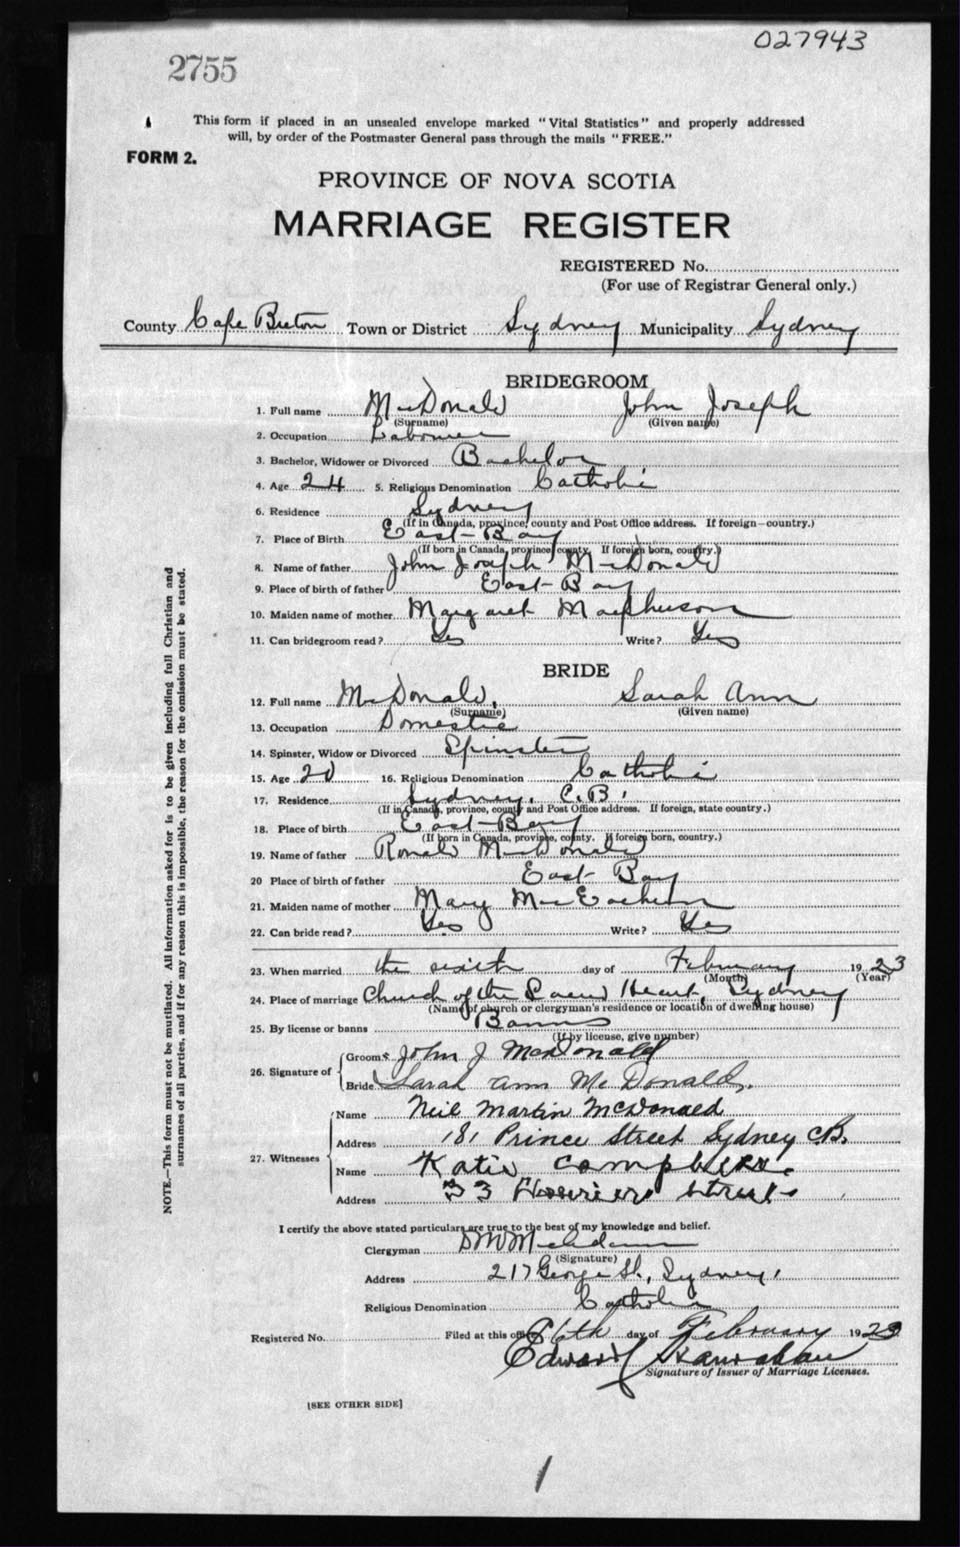 027943
2755
This form if placed in an unsealed envelope marked "Vital Statistics" and properly addressed
will, by order of the Postmaster General pass through the mails "FREE."
FORM 2.
PROVINCE OF NOVA SCOTIA
MARRIAGE REGISTER
REGISTERED No.
(For use of Registrar General only.)
County Cape Breton Town or District Sydney Municipality Sydney
BRIDEGROOM
1. Full name MacDonald John Joseph
(Surname) (Given name)
2. Occupation Labourer
3. Bachelor, Widower or Divorced Bachelor
4. Age 24 5. Religious Denomination Catholic
6. Residence Sydney
(If in Canada, province, county and Post Office address. If foreign—country.)
7. Place of Birth East Bay
(If born in Canada, province, county. If foreign born, country.)
8. Name of father John Joseph MacDonald
9. Place of birth of father East Bay
10. Maiden name of mother Margaret Macpherson
11. Can bridegroom read? Yes Write? Yes
BRIDE
12. Full name MacDonald, Sarah Ann
(Surname) (Given name)
13. Occupation Domestic
14. Spinster, Widow or Divorced Spinster
15. Age 20 16. Religious Denomination Catholic
17. Residence Sydney, C.B.
(If in Canada, province, county and Post Office address. If foreign, state country.)
18. Place of birth East Bay
(If born in Canada, province, county. If foreign born, country.)
19. Name of father Ronald MacDonald
20 Place of birth of father East Bay
21. Maiden name of mother Mary MacEachern
22. Can bride read? Yes Write? Yes
23. When married the sixth day of February 1923
(Month) (Year)
24. Place of marriage Church of the Sacred Heart, Sydney
(Name of church or clergyman's residence or location of dwelling house)
25. By license or banns Banns
(If by license, give number)
26. Signature of Groom John J McDonald
Bride Sarah Ann McDonald.
27. Witnesses Name Neil Martin McDonald
Address 181 Prince Street Sydney CB.
Name Katie Campbell
Address 33 Street
I certify the above stated particulars are true to the best of my knowledge and belief.
Clergyman
(Signature)
Address 217 George St., Sydney,
Religious Denomination Catholic
Registered No. Filed at this office 6th day of February 1923
Edward
Signature of Issuer of Marriage Licenses.
[SEE OTHER SIDE]
NOTE.—This form must not be mutilated. All information asked for is to be given including full Christian and
surnames of all parties, and if for any reason this is impossible, the reason for the omission must be stated.